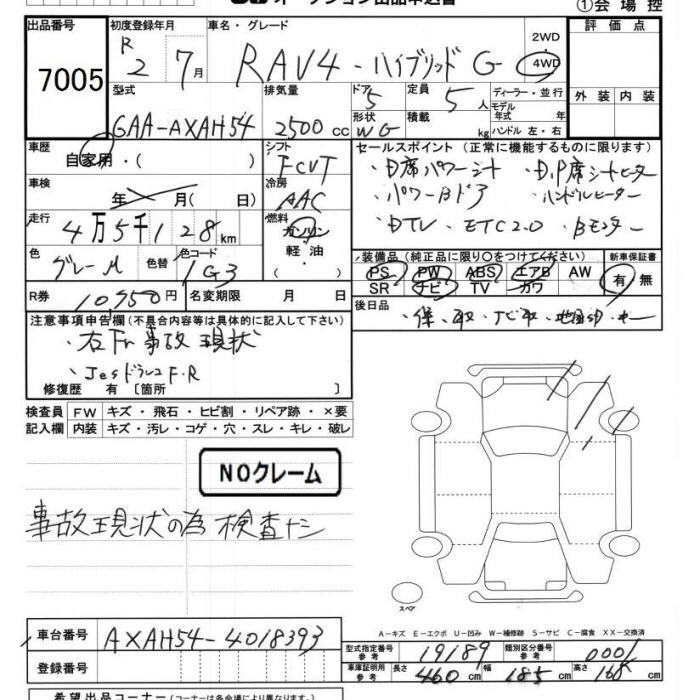 オークション出品申込書
①会場控
出品番号
7005
初度登録年月
R 2 7月
車名・グレード
RAV4-ハイブリッド G
2WD
4WD
評価点
型式
6AA-AXAH54
排気量
2500cc
ドア
5
定員
5人
ディーラー・並行
モデル年式 年
形状
WG
積載
kg
ハンドル 左・右
外装 内装
車歴
自家用・( )
シフト
FCVT
セールスポイント(正常に機能するものに限ります)
・D席パワーシート ・D,P席シートヒーター
・パワーBドア ・ハンドルヒーター
・DTV ・ETC2.0 ・Bモニター
車検
年 月( 日)
冷房
AAC
走行
4万5千128km
燃料
ガソリン
軽油・
( )
色
グレーM
色替
色コード
1G3
装備品(純正品に限り○をつけてください)
PS PW ABS エアB AW
SR ナビ TV カワ
新車保証書
有・無
R券
10,950円
名変期限 月 日
後日品
・保、取、ナビ取、
注意事項申告欄(不具合内容等は具体的に記入して下さい)
・右Fr事故現状
F.R
修復歴 有〔箇所 〕
検査員
記入欄
FW キズ・飛石・ヒビ割・リペア跡・×要
内装 キズ・汚レ・コゲ・穴・スレ・キレ・破レ
NOクレーム
事故現状の為検査ナシ
スペア
A-キズ E-エクボ U-凹み W-補修跡 S-サビ C-腐食 XX-交換済
車台番号
AXAH54-4018393
登録番号
型式指定番号
参考
19189
類別区分番号
参考
0001
車庫証明用
参考
長さ
460cm
幅
185cm
高さ
168cm
希望出品コーナー(コーナーは各会場により異なります)